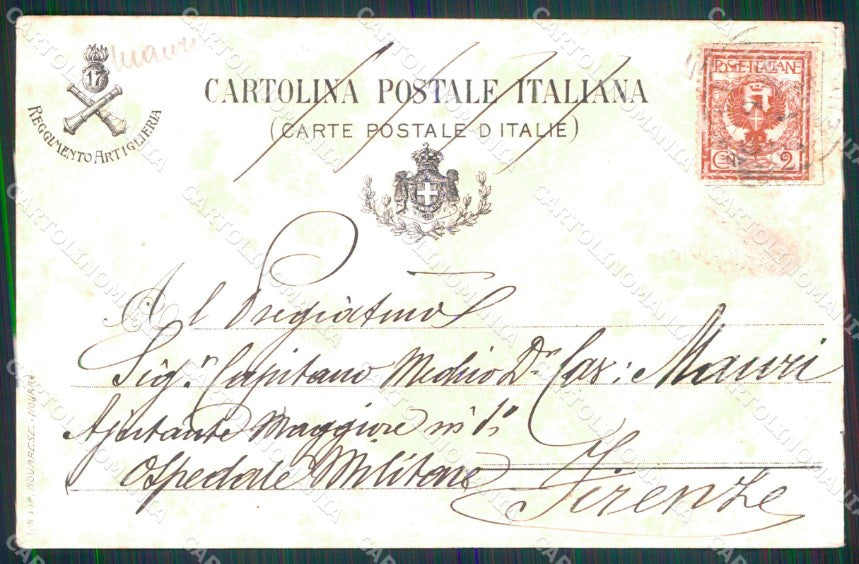 Mauri
17
REGGIMENTO ARTIGLIERIA
CARTOLINA POSTALE ITALIANA
(CARTE POSTALE D'ITALIE)
POSTE ITALIANE
CENT. 2
Al Pregiatmo
Sigr. Capitano Medico Dr Cav: Mauri
Ajutante Maggiore in 1°
Ospedale Militare
Firenze
NOVARESE - NOVARA
CARTOLINOMANIA